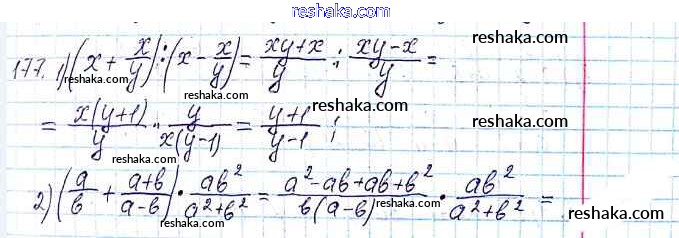 reshaka.com
177. 1) (x + x/y) : (x - x/y) = (xy+x)/y : (xy-x)/y =
reshaka.com reshaka.com reshaka.com
= x(y+1)/y · y/(x(y-1)) = (y+1)/(y-1) ;
reshaka.com reshaka.com reshaka.com
2) (a/b + (a+b)/(a-b)) · ab²/(a²+b²) = (a²-ab+ab+b²)/(b(a-b)) · ab²/(a²+b²) =
reshaka.com reshaka.com reshaka.com